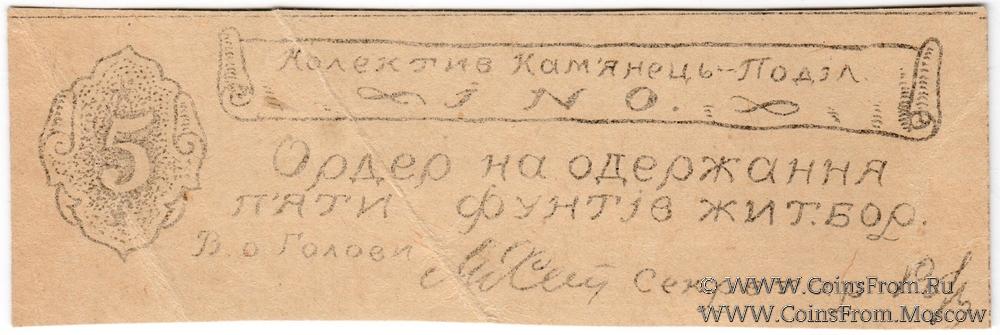 Колектив Кам'янець-Поділ.
І Н О.
5
Ордер на одержання
п'яти фунтів жит.бор.
В.о Голови
Секретар
© WWW.CoinsFrom.Ru
WWW.CoinsFrom.Moscow